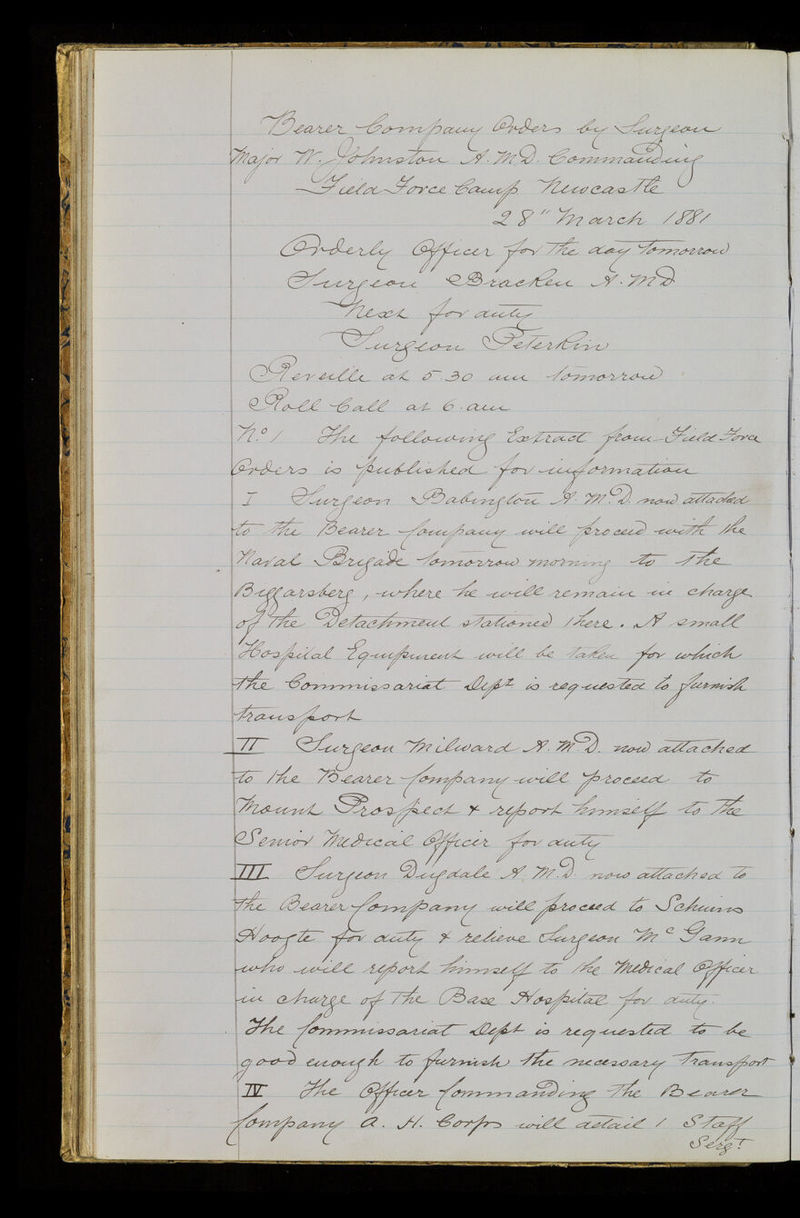 Bearer Company Orders by Surgeon
Major W. Johnston A.M.D. Commanding
Field Force Camp Newcastle
28" March 1881
Orderly Officer for the day tomorrow
Surgeon Bracken A.M.D
Next for duty
Surgeon Peterkin
Reveille at 5.30 am tomorrow
Roll Call at 6.am
No. 1 The following Extract from Field Force
Orders is published for information
I Surgeon Babington A.M.D. now attached
to the Bearer Company will proceed with the
Naval Brigade tomorrow morning to the
Biggarsberg, where he will remain in charge
of the Detachment stationed there. A small
Hospital Equipment will be taken for which
the Commissariat Dept is requested to furnish
transport
II Surgeon Milward A.M.D. now attached
to the Bearer Company will proceed to
Mount Prospect & report himself to the
Senior Medical Officer for duty
III Surgeon Dugdale A.M.D. now attached to
the Bearer Company will proceed to Schuins
Hoogte for duty & relieve Surgeon McGann
who will report himself to the Medical Officer
in charge of the Base Hospital for duty.
The Commissariat Dept is requested to be
good enough to furnish the necessary Transport
IV The Officer Commanding the Bearer
Company A.H. Corps will detail 1 Staff
Sergt